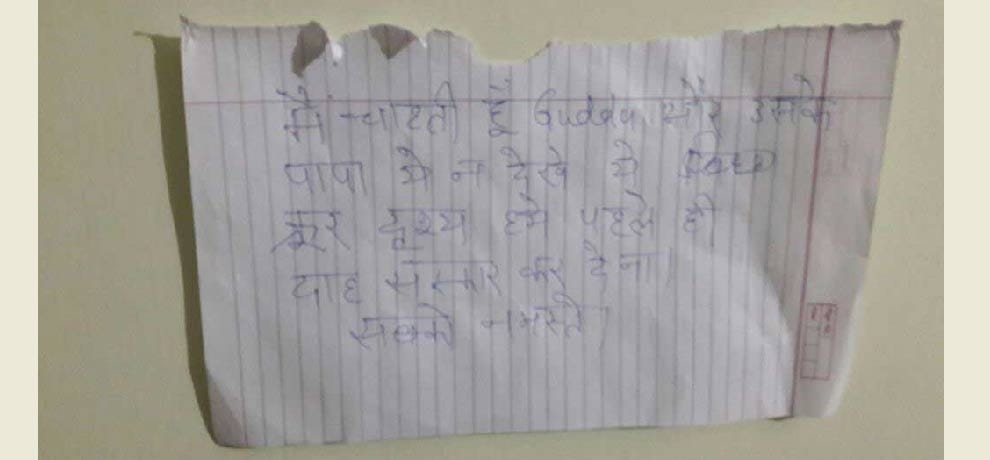 मैं चाहती हूँ Guddan और उसके
पापा ये न देखे ये
क्रूर दृश्य हमे पहले ही
दाह संस्कार कर देना।
सबको नमस्ते।